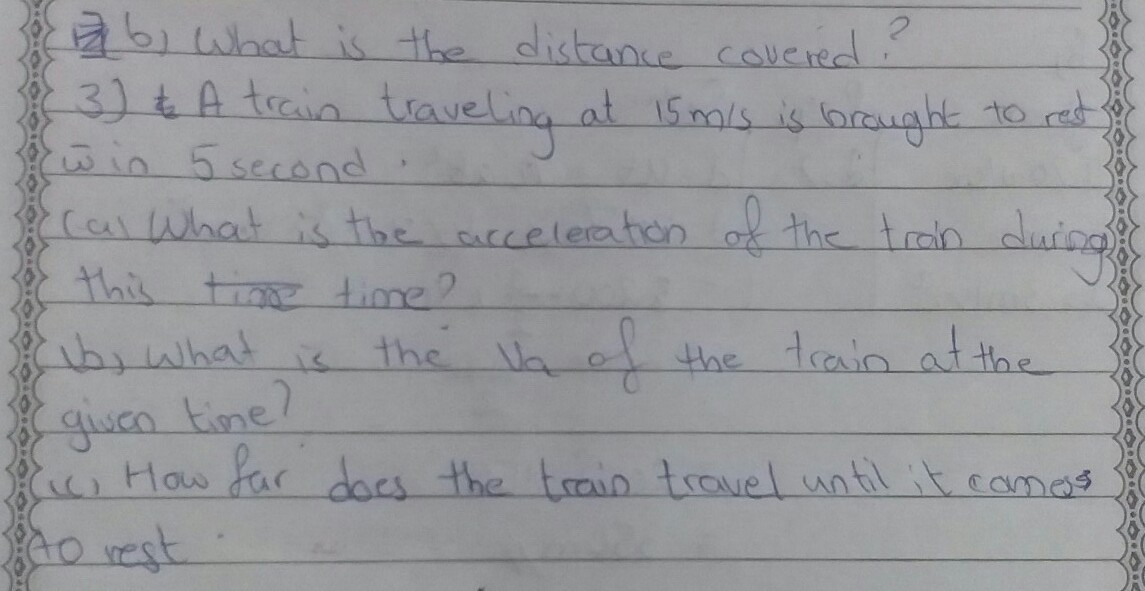 b) What is the distance covered?
3) A train traveling at 15m/s is brought to ret
w in 5 second.
(a) What is the acceleration of the train during
this time time?
(b) What is the Va of the train at the
given time?
(c) How far does the train travel until it comes
to rest.